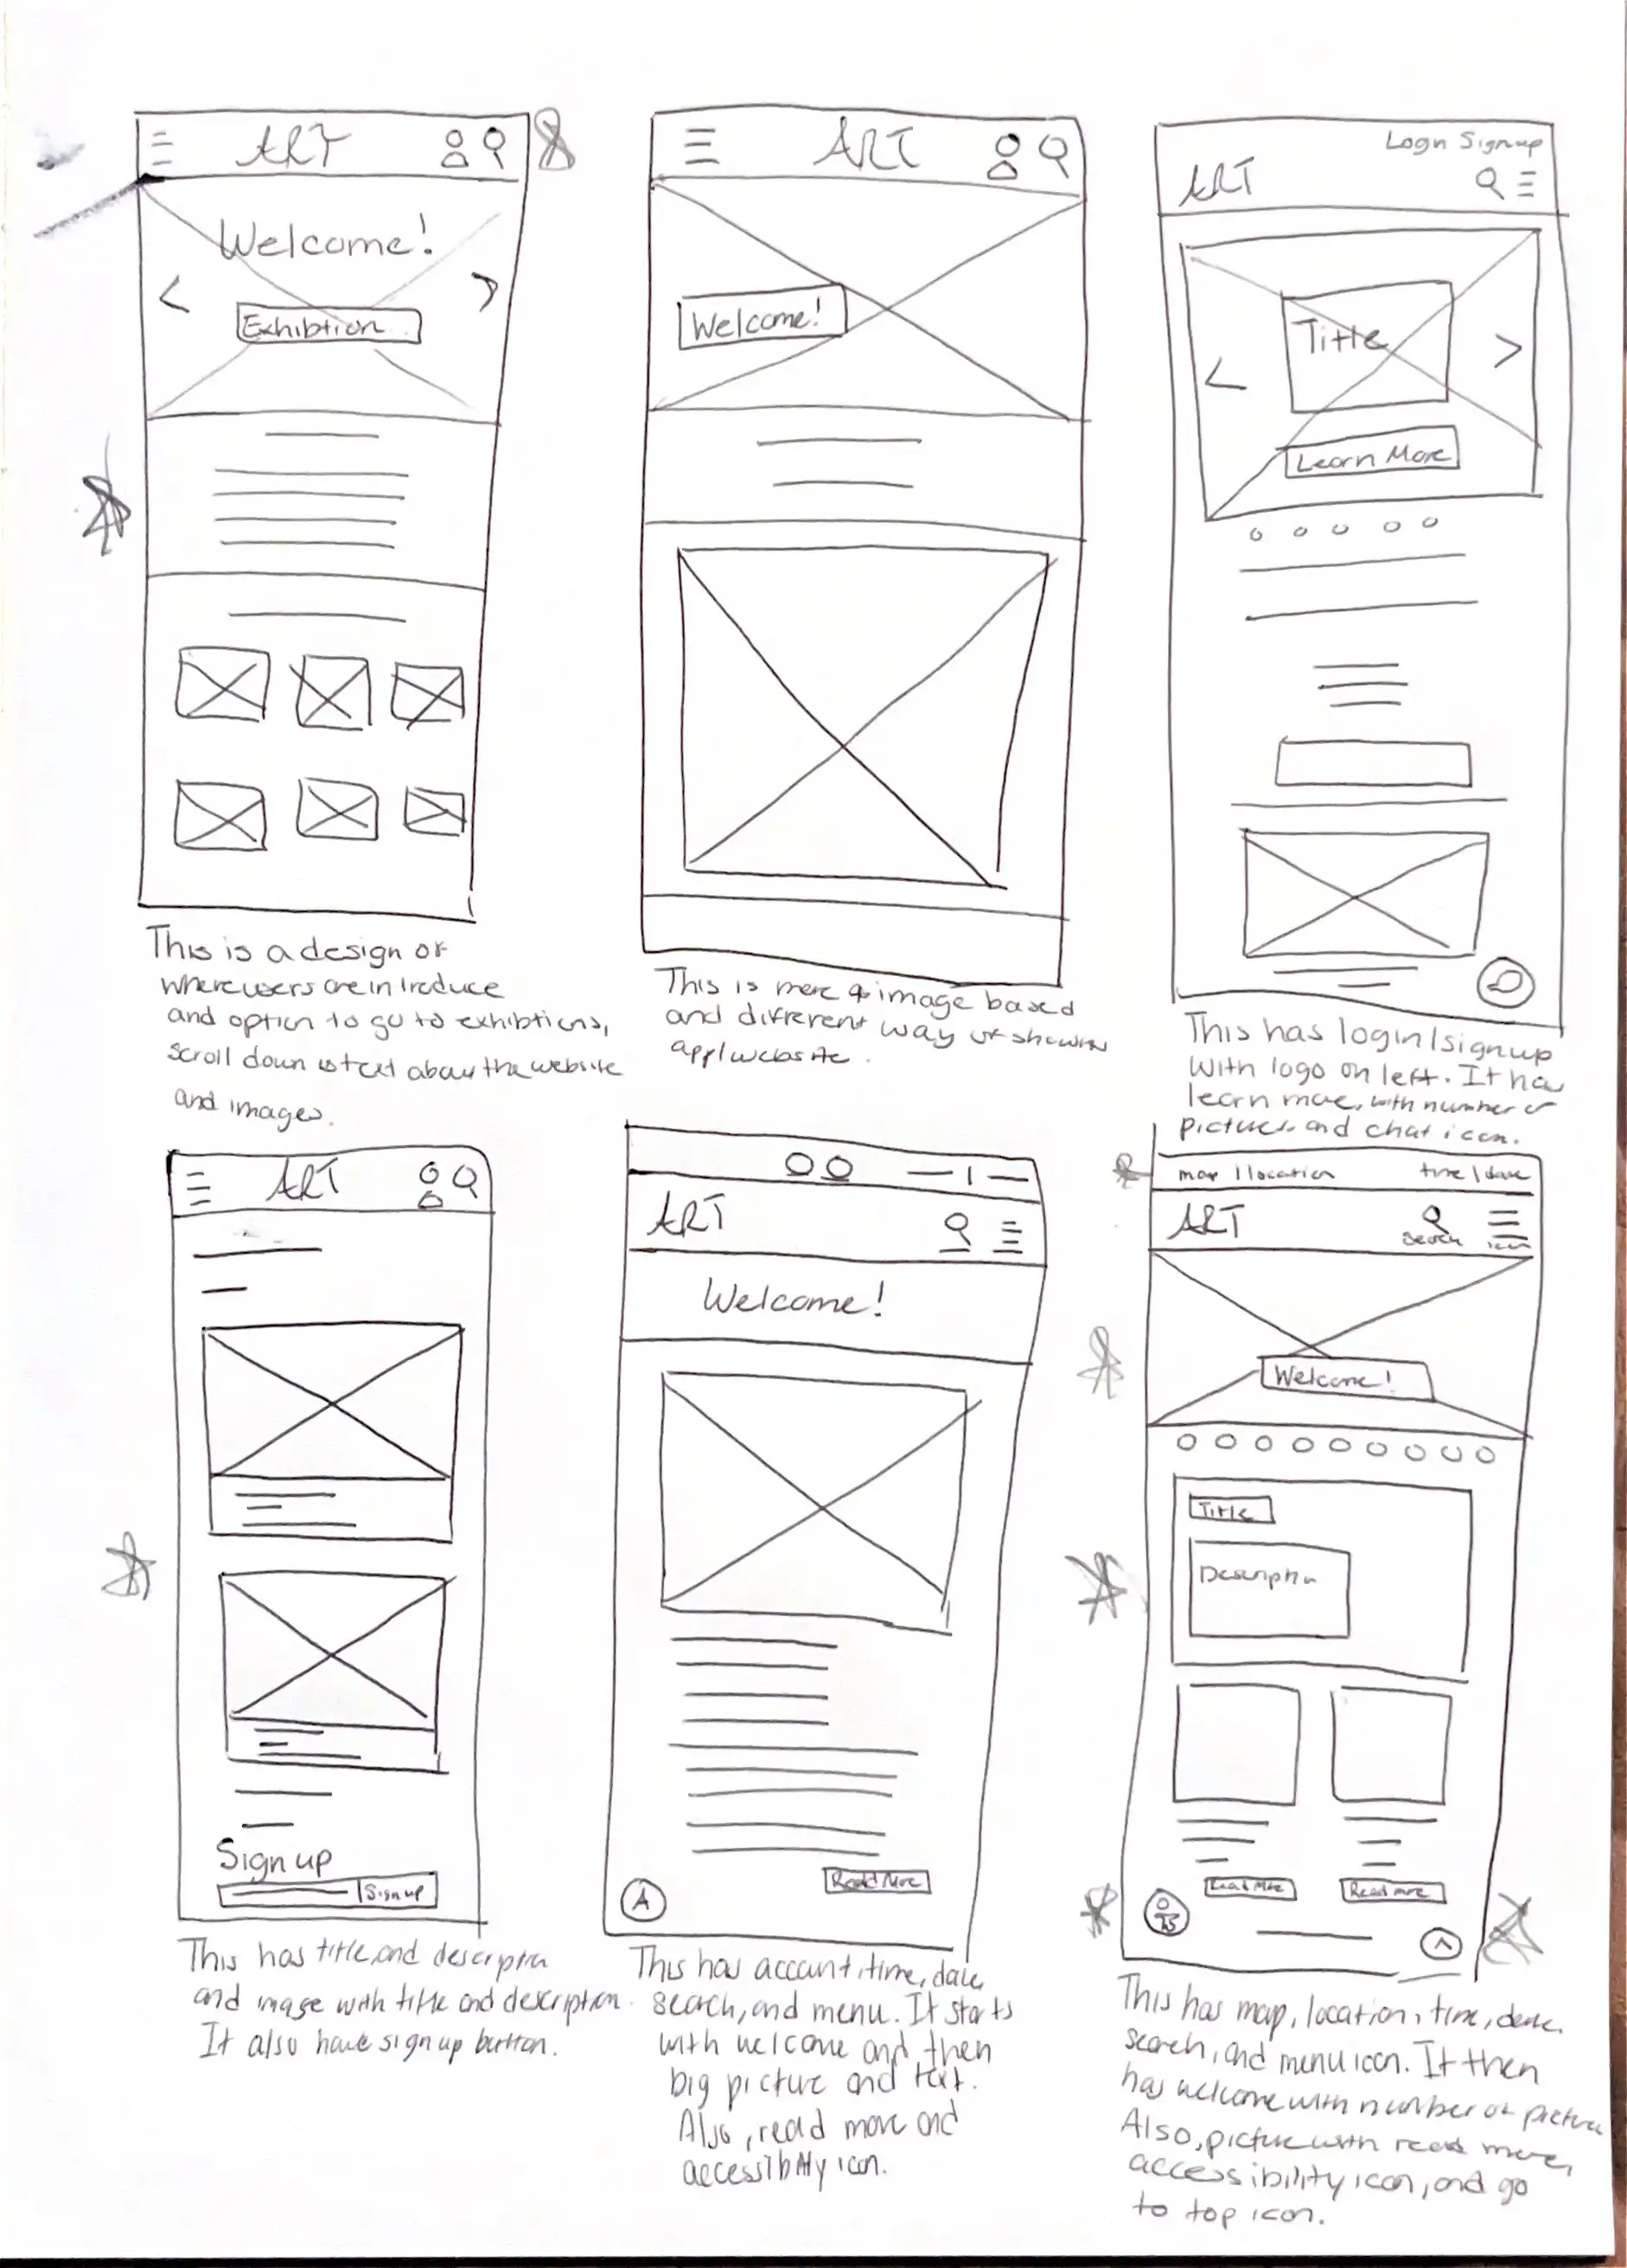 ART
Welcome!
< >
Exhibtion
This is a design of
where users are in troduce
and option to go to exhibtions,
scroll down is text about the website
and images.
ART
Welcome!
This is more image based
and different way of showing
app/website.
Login Signup
ART
Title
< >
Learn More
This has login/signup
with logo on left. It has
learn more, with number of
pictures and chat icon.
ART
Sign up
Sign up
This has title and description
and image with title and description.
It also have sign up button.
ART
Welcome!
Read More
A
This has account, time, date,
search, and menu. It starts
with welcome and then
big picture and text.
Also, read more and
accessibility icon.
map / location time / date
ART
search icon
Welcome!
Title
Description
Read More Read more
This has map, location, time, date,
search, and menu icon. It then
has welcome with number of picture
Also, picture with read more,
accessibility icon, and go
to top icon.